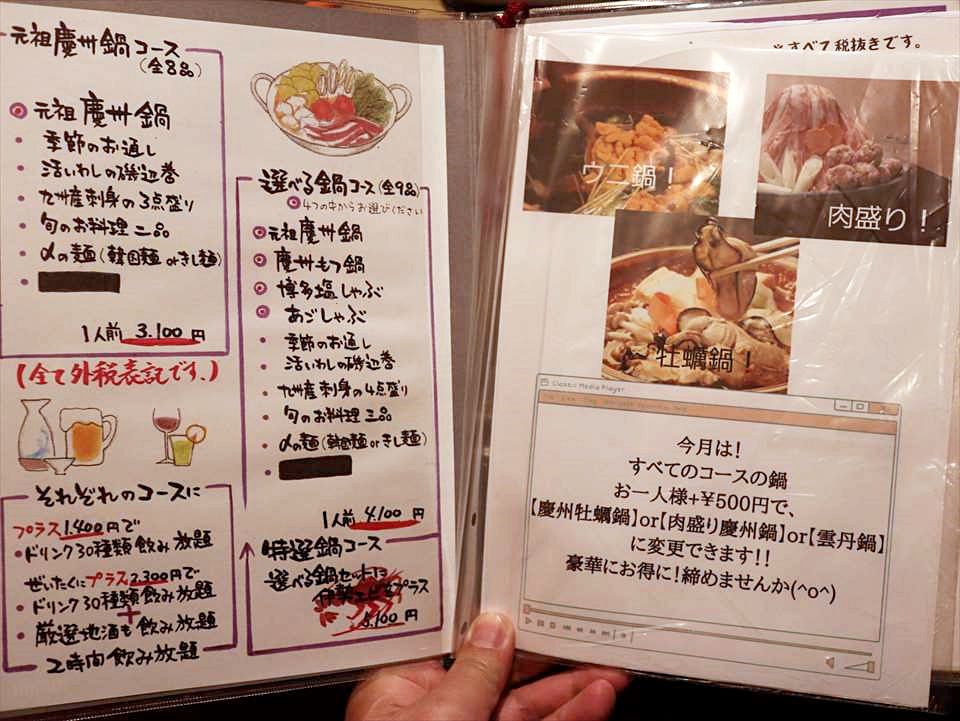 元祖慶州鍋コース
(全8品)
◎元祖慶州鍋
・季節のお通し
・活いわしの磯辺巻
・九州産刺身の3点盛り
・旬のお料理二品
・〆の麺(韓国麺orきし麺)
1人前 3.100円
(全て外税表記です。)
それぞれのコースに
プラス1.400円で
・ドリンク30種類飲み放題
ぜいたくにプラス2.300円で
・ドリンク30種類飲み放題
+
・厳選地酒も飲み放題
2時間飲み放題
選べる鍋コース(全9品)
◎4つの中からお選びください
◎元祖慶州鍋
◎慶州もつ鍋
◎博多塩しゃぶ
◎あごしゃぶ
・季節のお通し
・活いわしの磯辺巻
・九州産刺身の4点盛り
・旬のお料理三品
・〆の麺(韓国麺orきし麺)
1人前 4.100円
特選鍋コース
選べる鍋セットに
伊勢エビをプラス
円
※すべて税抜きです。
ウニ鍋！
肉盛り！
牡蠣鍋！
Classic Media Player
今月は！
すべてのコースの鍋
お一人様+¥500円で、
【慶州牡蠣鍋】or【肉盛り慶州鍋】or【雲丹鍋】
に変更できます！！
豪華にお得に！締めませんか(^o^)